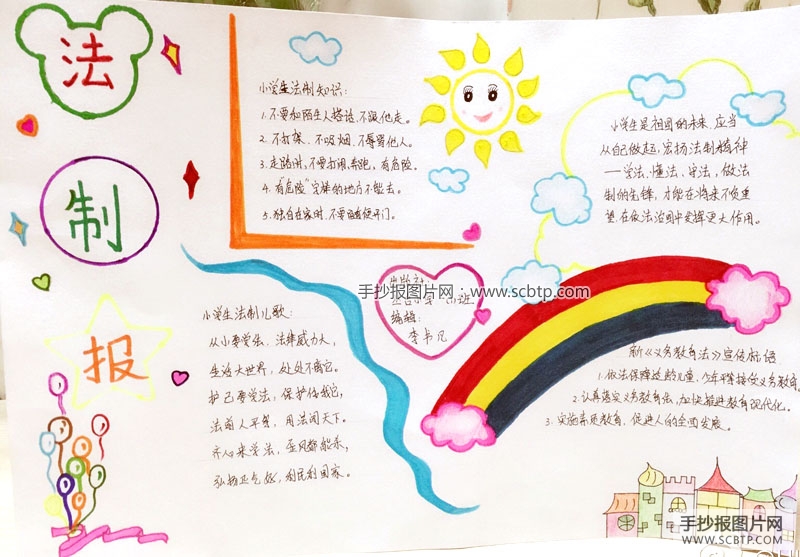 法
制
报
小学生法制知识：
1.不要和陌生人搭话、不跟他走。
2.不打架、不吸烟、不辱骂他人。
3.走路时，不要打闹、奔跑，有危险。
4.有“危险”字样的地方不能去。
5.独自在家时、不要随便开门。
小学生是祖国的未来、应当
从自己做起，宏扬法制精神
—学法、懂法、守法，做法
制的先锋，才能在将来不负重
望、在依法治国中发挥更大作用。
出版社
手抄报图片网：www.scbtp.com
编辑：
李书凡
小学生法制儿歌：
从小要学法，法律威力大，
生活大世界，处处不离它。
护己要学法，保护你我它，
法前人平等，用法闯天下。
齐心来学法，歪风都能杀，
弘扬正气好，利民利国家。
新《义务教育法》宣传标语
1.依法保障适龄儿童、少年平等接受义务教育。
2.认真落实义务教育法，加快推进教育现代化。
3.实施素质教育，促进人的全面发展。
手抄报图片网
WWW.SCBTP.COM